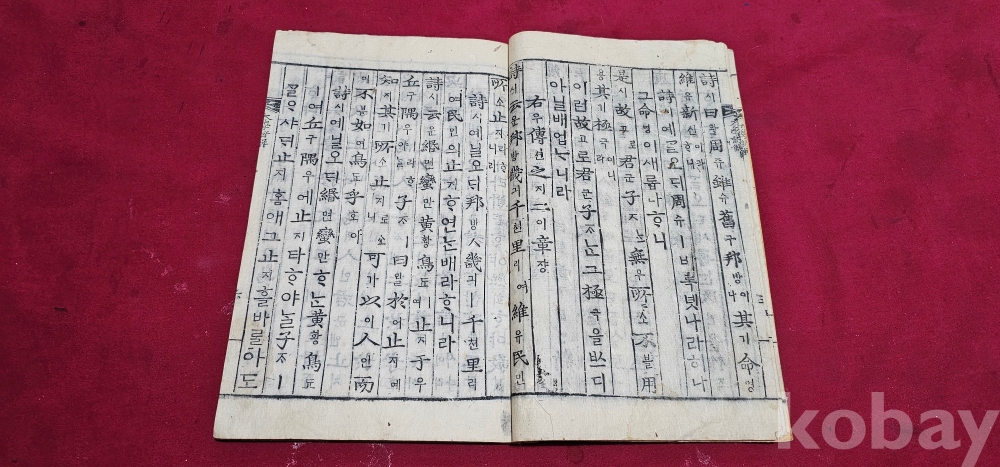 詩시曰왈周쥬雖슈舊구邦방이나其기命명
維유新신이라ᄒᆞ니
詩시예ᄀᆞᆯ오ᄃᆡ周쥬ㅣ비록녯나라히나
그命명이새롭다ᄒᆞ니
是시故고로君군子ᄌᆞᄂᆞᆫ無무所소不블用
용其기極극이니라
이런故고로君군子ᄌᆞᄂᆞᆫ그極극을ᄡᅳ디
아닐배업ᄂᆞ니라
右우傳뎐之지二이章쟝
詩시云운邦방畿긔千쳔里리여維유民민
所소止지라ᄒᆞ니라
詩시예닐오ᄃᆡ邦방ㅅ畿긔ㅣ千쳔里리
여民민의止지ᄒᆞ연ᄂᆞᆫ배라ᄒᆞ니라
詩시云운緡면蠻만黃황鳥됴ㅣ여止지于우
丘구隅우ㅣ라ᄒᆞ야ᄂᆞᆯ子ᄌᆞㅣ曰왈於어止지예
知지其기所소止지로소니可가以이人인而
이不블如여鳥됴乎호아
詩시예닐오ᄃᆡ緡면蠻만ᄒᆞᄂᆞᆫ黃황鳥됴
ㅣ여丘구隅우에止지타ᄒᆞ야ᄂᆞᆯ子ᄌᆞㅣ
ᄀᆞᆯᄋᆞ샤ᄃᆡ止지홈애그止지ᄒᆞᆯ바ᄅᆞᆯ아도
kobay